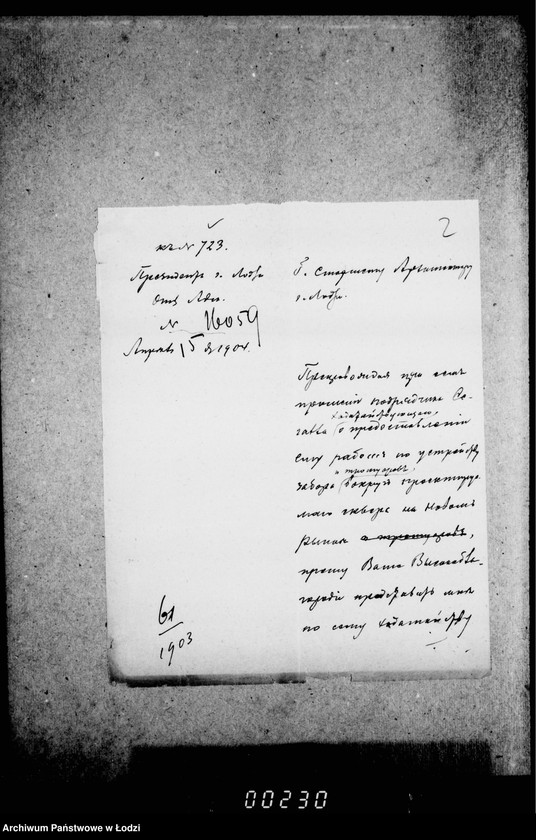 2
къ № 723.
Президентъ г. Лодзи
Отд. Адм.
№ 16059
Апреля 15 д. 1904.
Г. Старшему Архитектору
г. Лодзи.
Препровождая при семъ
прошеніе подрядчика
ходатайствующаго,
о предоставленіи
ему работъ по устройству
и тротуаровъ,
забора вокругъ проектируе-
маго сквера на Новомъ
Рынкѣ и тротуаровъ,
прошу Ваше Высокобла-
городіе представить мнѣ
по сему ходатайству
61
1903
00230
Archiwum Państwowe w Łodzi